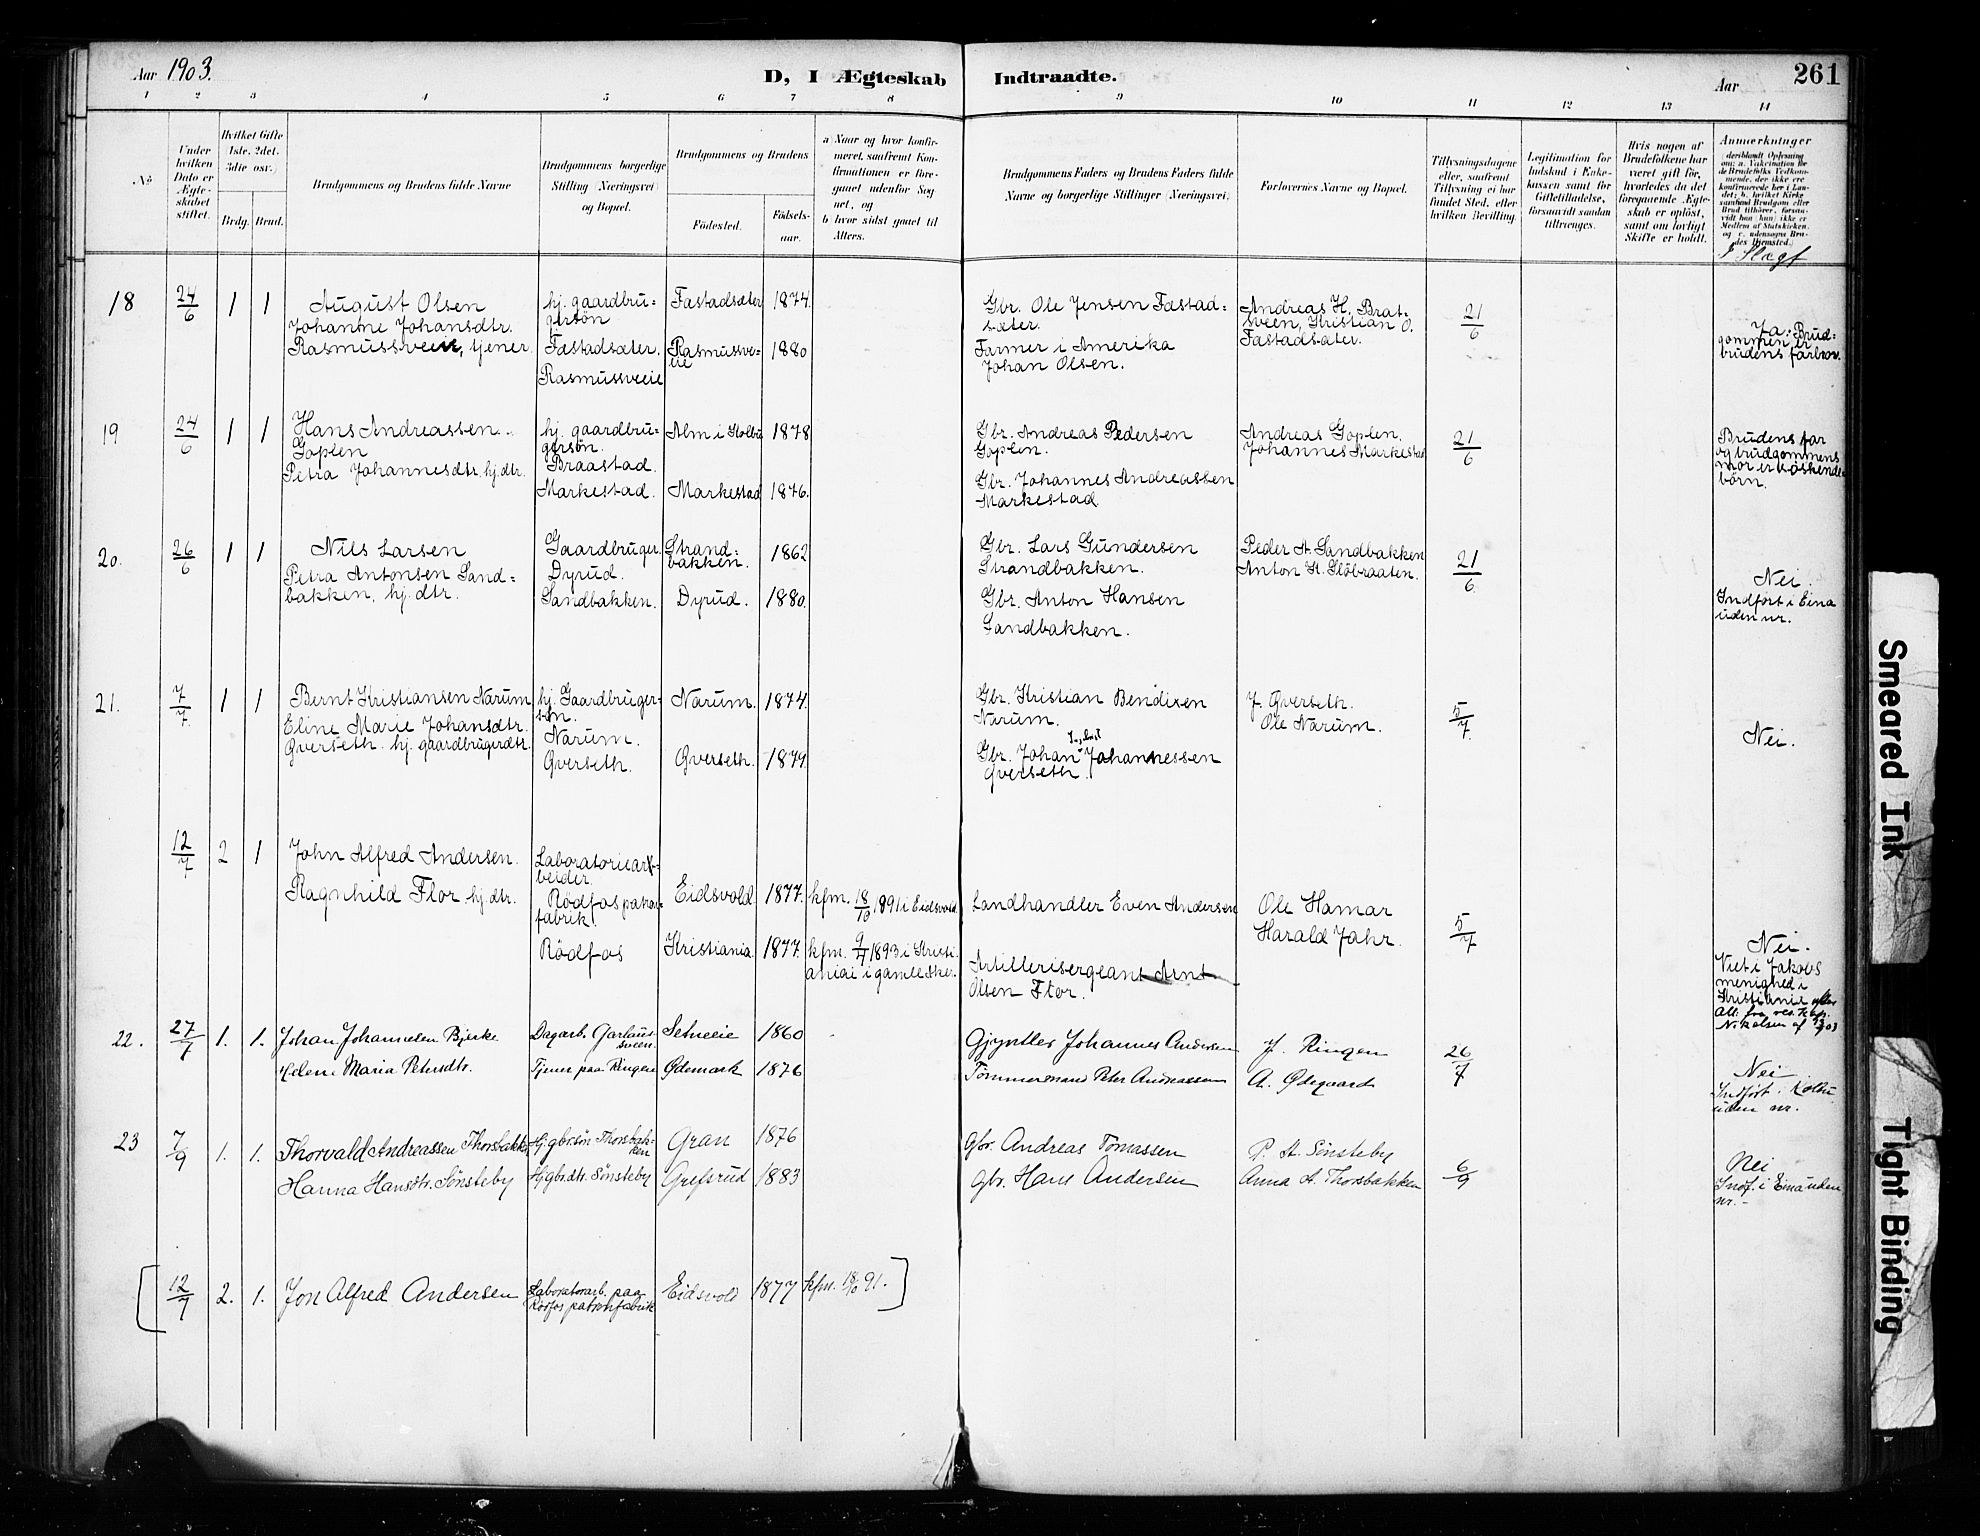 Aar 1903.
D, I Ægteskab Indtraadte.
Aar
261
1 2 3 4 5 6 7 8 9 10 11 12 13 14
No
Under hvilken Dato er Ægteskabet stiftet.
Hvilket Gifte 1ste, 2det, 3die osv.
Brdg. Brud.
Brudgommens og Brudens fulde Navne
Brudgommens borgerlige Stilling (Næringsvei) og Bopæl.
Brudgommens og Brudens
Födested.
Födsels-aar.
a) Naar og hvor konfirmeret, saafremt Konfirmationen er foregaaet udenfor Sognet, og
b) hvor sidst gaaet til Alters.
Brudgommens Faders og Brudens Faders fulde Navne og borgerlige Stillinger (Næringsvei)
Forlovernes Navne og Bopæl.
Tillysningsdagene eller, saafremt Tillysning ei har fundet Sted, efter hvilken Bevilling.
Legitimation for Indskud i Enkekassen samt for Giftetilladelse, forsaavidt saadan tiltrænges.
Hvis nogen af Brudefolkene har været gift för, hvorledes da det foregaaende Ægteskab er oplöst, samt om lovligt Skifte er holdt.
Anmerkninger
I Slægt
18 24/6 1 1
August Olsen
Johanne Johansdtr.
Rasmussveen, tjener
hj. gaardbru-
gersön
Fæstadsæter.
Rasmussveie
Fæstadsæter 1874.
Rasmussve-
eie 1880
Gbr. Ole Jensen Fæstad-
sæter.
Farmer i Amerika
Johan Olsen.
Andreas H. Brat-
sveen, Kristian O.
Fæstadsæter.
21/6
Ja: Brud-
gommen er
brudens farbror.
19 24/6 1 1
Hans Andreassen
Goplen
Petra Johannesdtr. hj. dtr.
hj. gaardbru-
gersön.
Braastad.
Markestad.
Alm i Kolbu 1878
Markestad 1876.
Gbr. Andreas Pedersen
Goplen.
Gbr. Johannes Andreassen
Markestad
Andreas Goplen.
Johannes Markestad
21/6
Brudens far
og brudgommens
mor er söskende-
börn.
20. 26/6 1 1
Nils Larsen
Petra Antonsen Sand-
bakken, hj. dtr.
Gaardbruger
Dyrud.
Sandbakken.
Strand-
bakken. 1862
Dyrud. 1880.
Gbr. Lars Gundersen
Strandbakken.
Gbr. Anton Hansen
Sandbakken.
Peder A. Sandbakken
Anton H. Slöbraaten.
21/6
Nei.
Indfört i Eina
uden nr.
21. 7/7 1 1
Bernt Kristiansen Narum
Eline Marie Johansdtr.
Qverseth. hj. gaardbrugerdtr.
hj. Gaardbruger-
sön.
Narum.
Qverseth.
Narum. 1874.
Qverseth. 1879.
Gbr. Kristian Bendixen
Narum.
Gbr. Johan Johannessen
Qverseth.
J. Qverseth.
Ole Narum.
5/7
Nei.
12/7 2 1
John Alfred Andersen.
Ragnhild Flor hj. dtr.
Laboratoriear-
beider
Rödfos patron-
fabrik.
Rödfos
Eidsvold 1877. kfm. 18/10 1891 i Eidsvold.
Kristiania 1877. kfm. 9/4 1893 i Kristi-
ania i gamle Aker.
Landhandler Even Andersen
Artillerisergeant Arnt
Olsen Flor.
Ole Hamar
Harald Jahr.
5/7
Nei.
Viet i Jakobs
menighed i
Kristiania efter
att. fra res. kap.
Nikolsen af 1903
22. 27/7 1. 1.
Johan Johannesen Bjerke
Helene Maria Petersdtr.
Dagarb. Garlaus-
sveen.
Tjener paa Ringen
Setneeie 1860
Ødemark 1876
Johannes Andersen
Tömmermand Peter Andreassen
J. Ringen
A. Ødegaard
26/7
Nei
Indfört i Kolbu
uden nr.
23 7/9 1. 1.
Thorvald Andreassen Thorsbakk.
Hanna Hansdtr. Sønsteby
Hj. gbr.søn Thorsbak-
ken
Hj gbr.dtr. Sønsteby
Gran 1876
Grefsrud 1883
Gbr. Andreas Tomassen
Gbr. Hans Andersen
P. A. Sønsteby
Anna A. Thorsbakken
6/9
Nei
Indf. i Eina uden
nr.-
12/7 2. 1. Jon Alfred Andersen
Laboratorarb. paa
Rödfos patronfabrik
Eidsvold 1877 kfm. 18/10 91.
Smeared Ink
Tight Binding